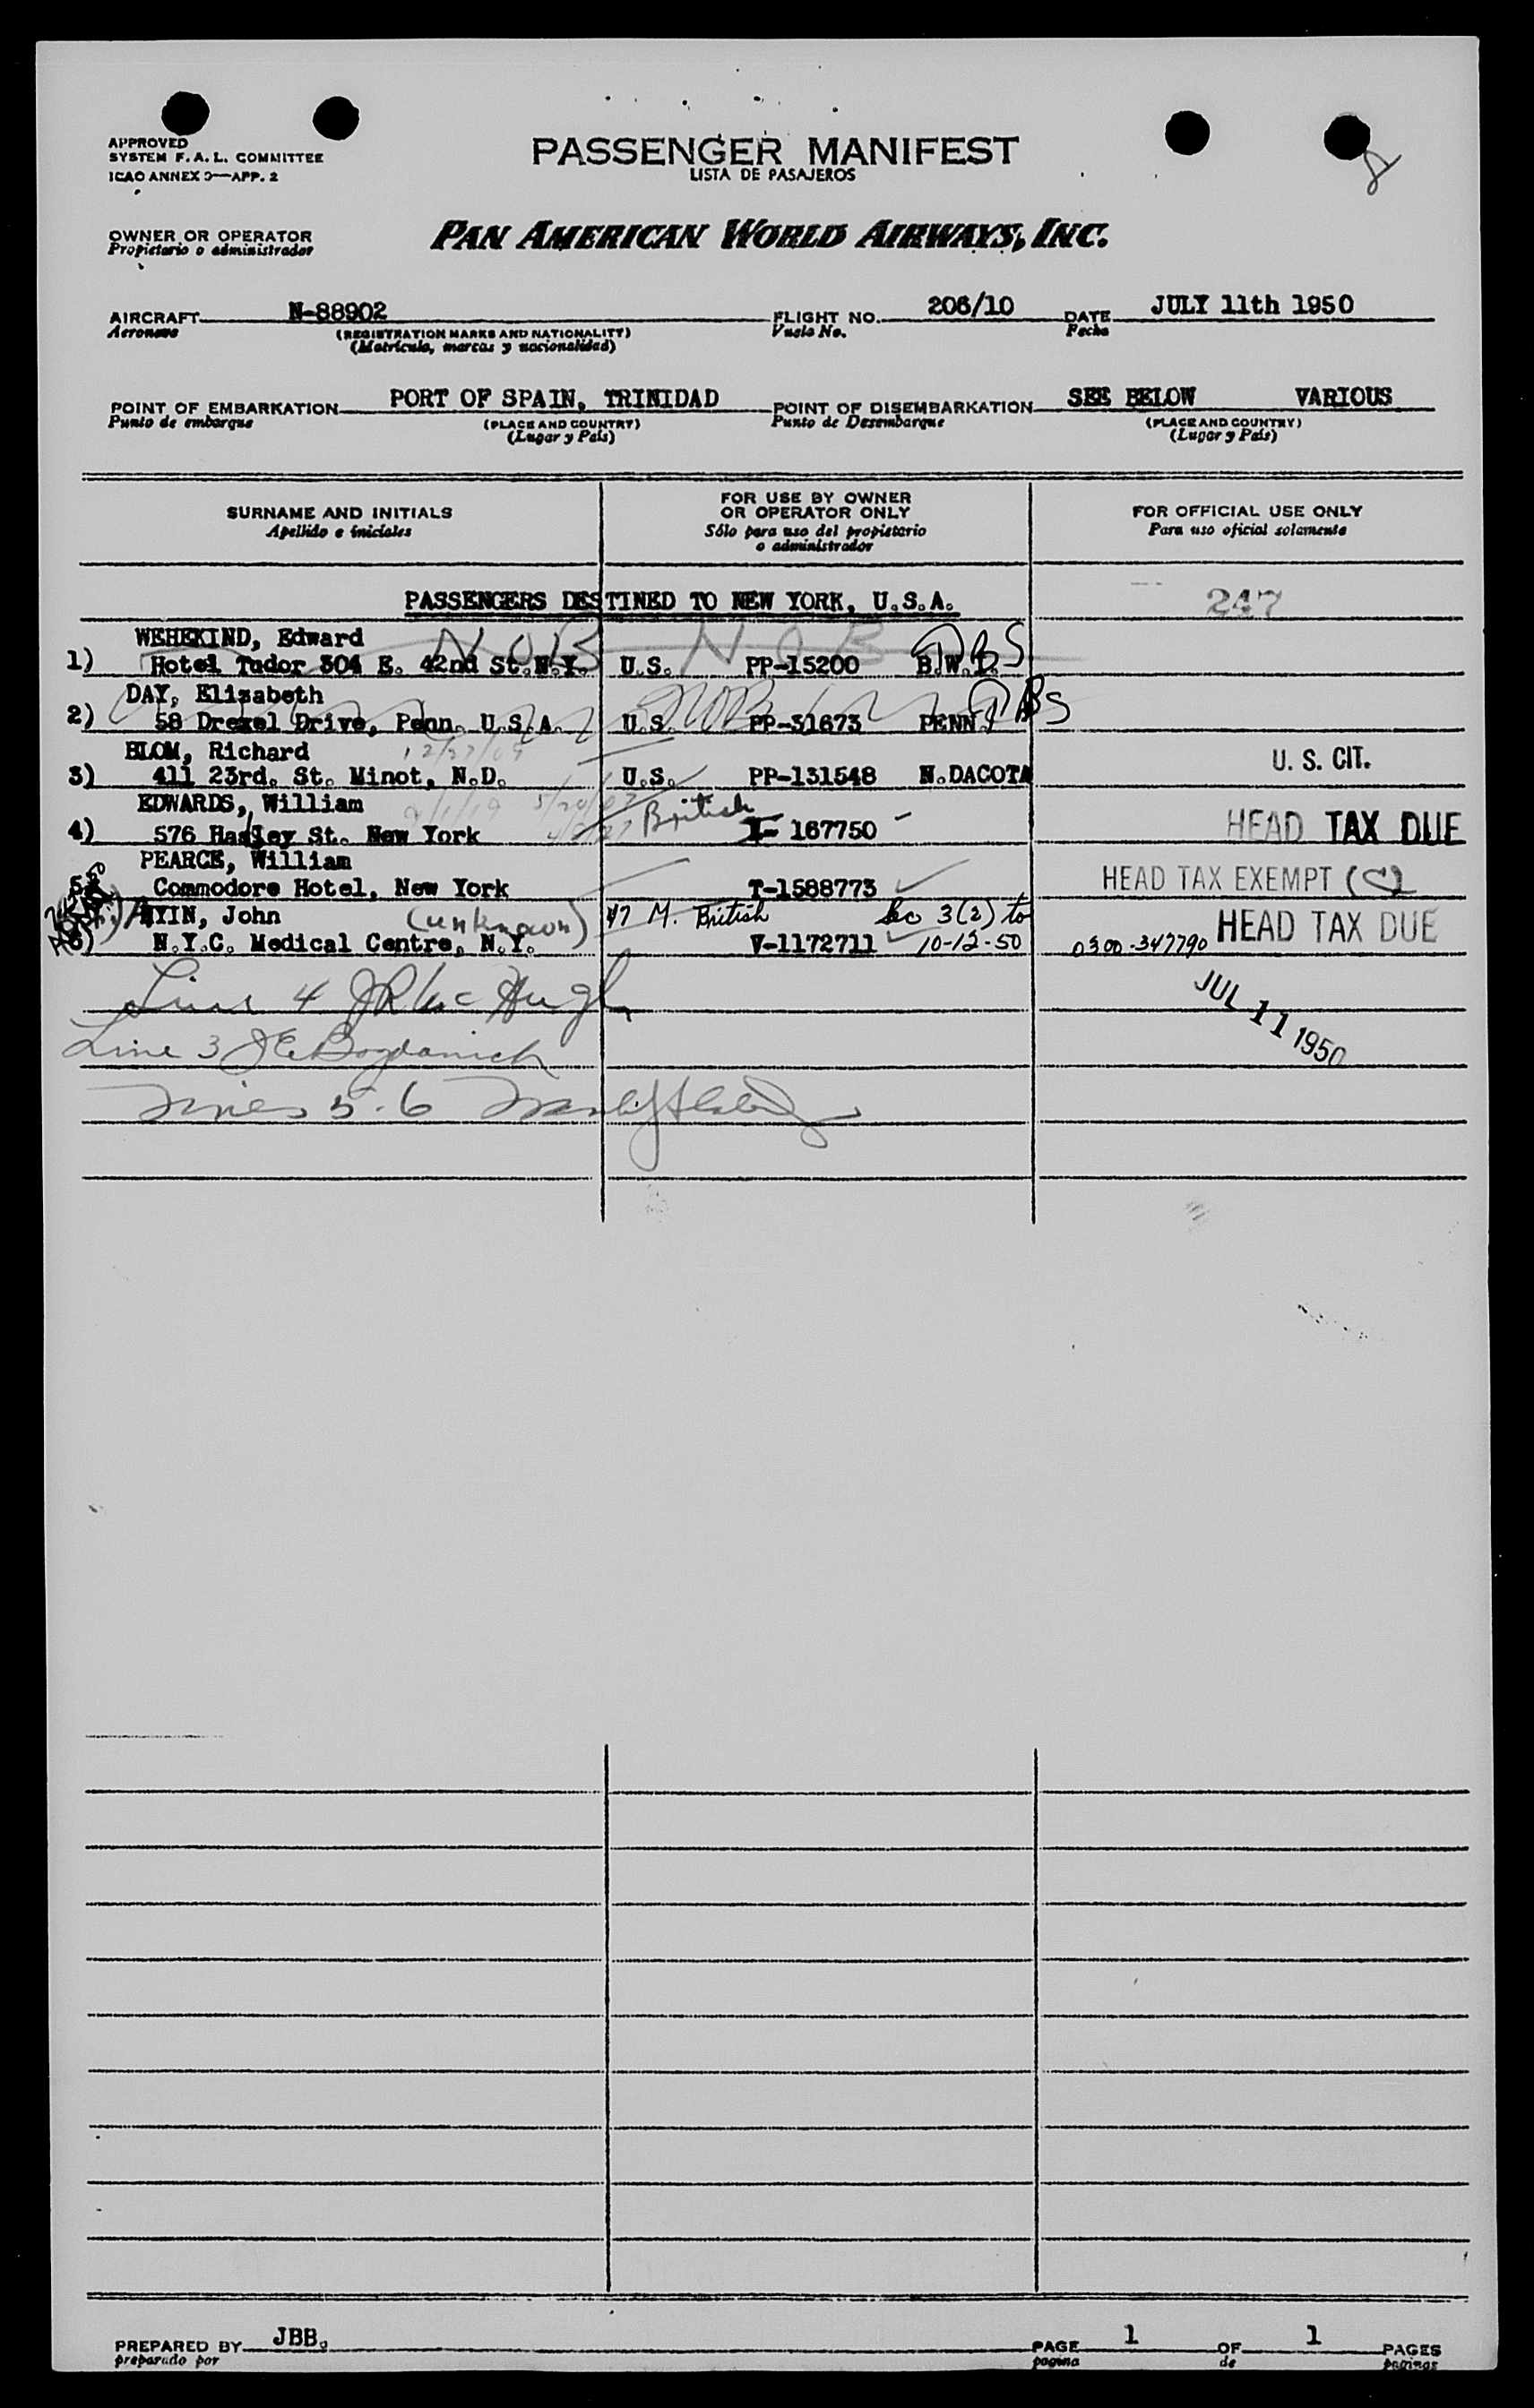 APPROVED
SYSTEM F.A.L. COMMITTEE
ICAO ANNEX 9—APP. 2
PASSENGER MANIFEST
LISTA DE PASAJEROS
OWNER OR OPERATOR
Propietario o administrador
PAN AMERICAN WORLD AIRWAYS, INC.
AIRCRAFT N-88902 FLIGHT NO. 206/10 DATE JULY 11th 1950
Aeronave (REGISTRATION MARKS AND NATIONALITY) Vuelo No. Fecha
(Matrícula, marcas y nacionalidad)
POINT OF EMBARKATION PORT OF SPAIN, TRINIDAD POINT OF DISEMBARKATION SEE BELOW VARIOUS
Punto de embarque (PLACE AND COUNTRY) Punto de Desembarque (PLACE AND COUNTRY)
(Lugar y País) (Lugar y País)
SURNAME AND INITIALS FOR USE BY OWNER OR OPERATOR ONLY FOR OFFICIAL USE ONLY
Apellido e iniciales Sólo para uso del propietario o administrador Para uso oficial solamente
PASSENGERS DESTINED TO NEW YORK, U.S.A. 247
WEHEKIND, Edward NOB NOB
1) Hotel Tudor 304 E. 42nd St.N.Y. U.S. PP-15200 B.W.I.
DAY, Elizabeth NOB
2) 58 Drexel Drive, Penn. U.S.A. U.S. PP-31673 PENN.
BLOM, Richard 12/27/09
3) 411 23rd. St. Minot, N.D. U.S. PP-131548 N.DACOTA U. S. CIT.
EDWARDS, William British
4) 576 Hasley St. New York I- 167750 HEAD TAX DUE
PEARCE, William
5) Commodore Hotel, New York T-1588773 HEAD TAX EXEMPT
AYIN, John (unknown) 47 M. British Sec 3(2) to
6) N.Y.C. Medical Centre, N.Y. V-1172711 10-12-50 0300-347790 HEAD TAX DUE
JUL 11 1950
Line 4
Line 3 JE Bogdanich
Lines 5-6
PREPARED BY JBB. PAGE 1 OF 1 PAGES
preparado por pagina de paginas